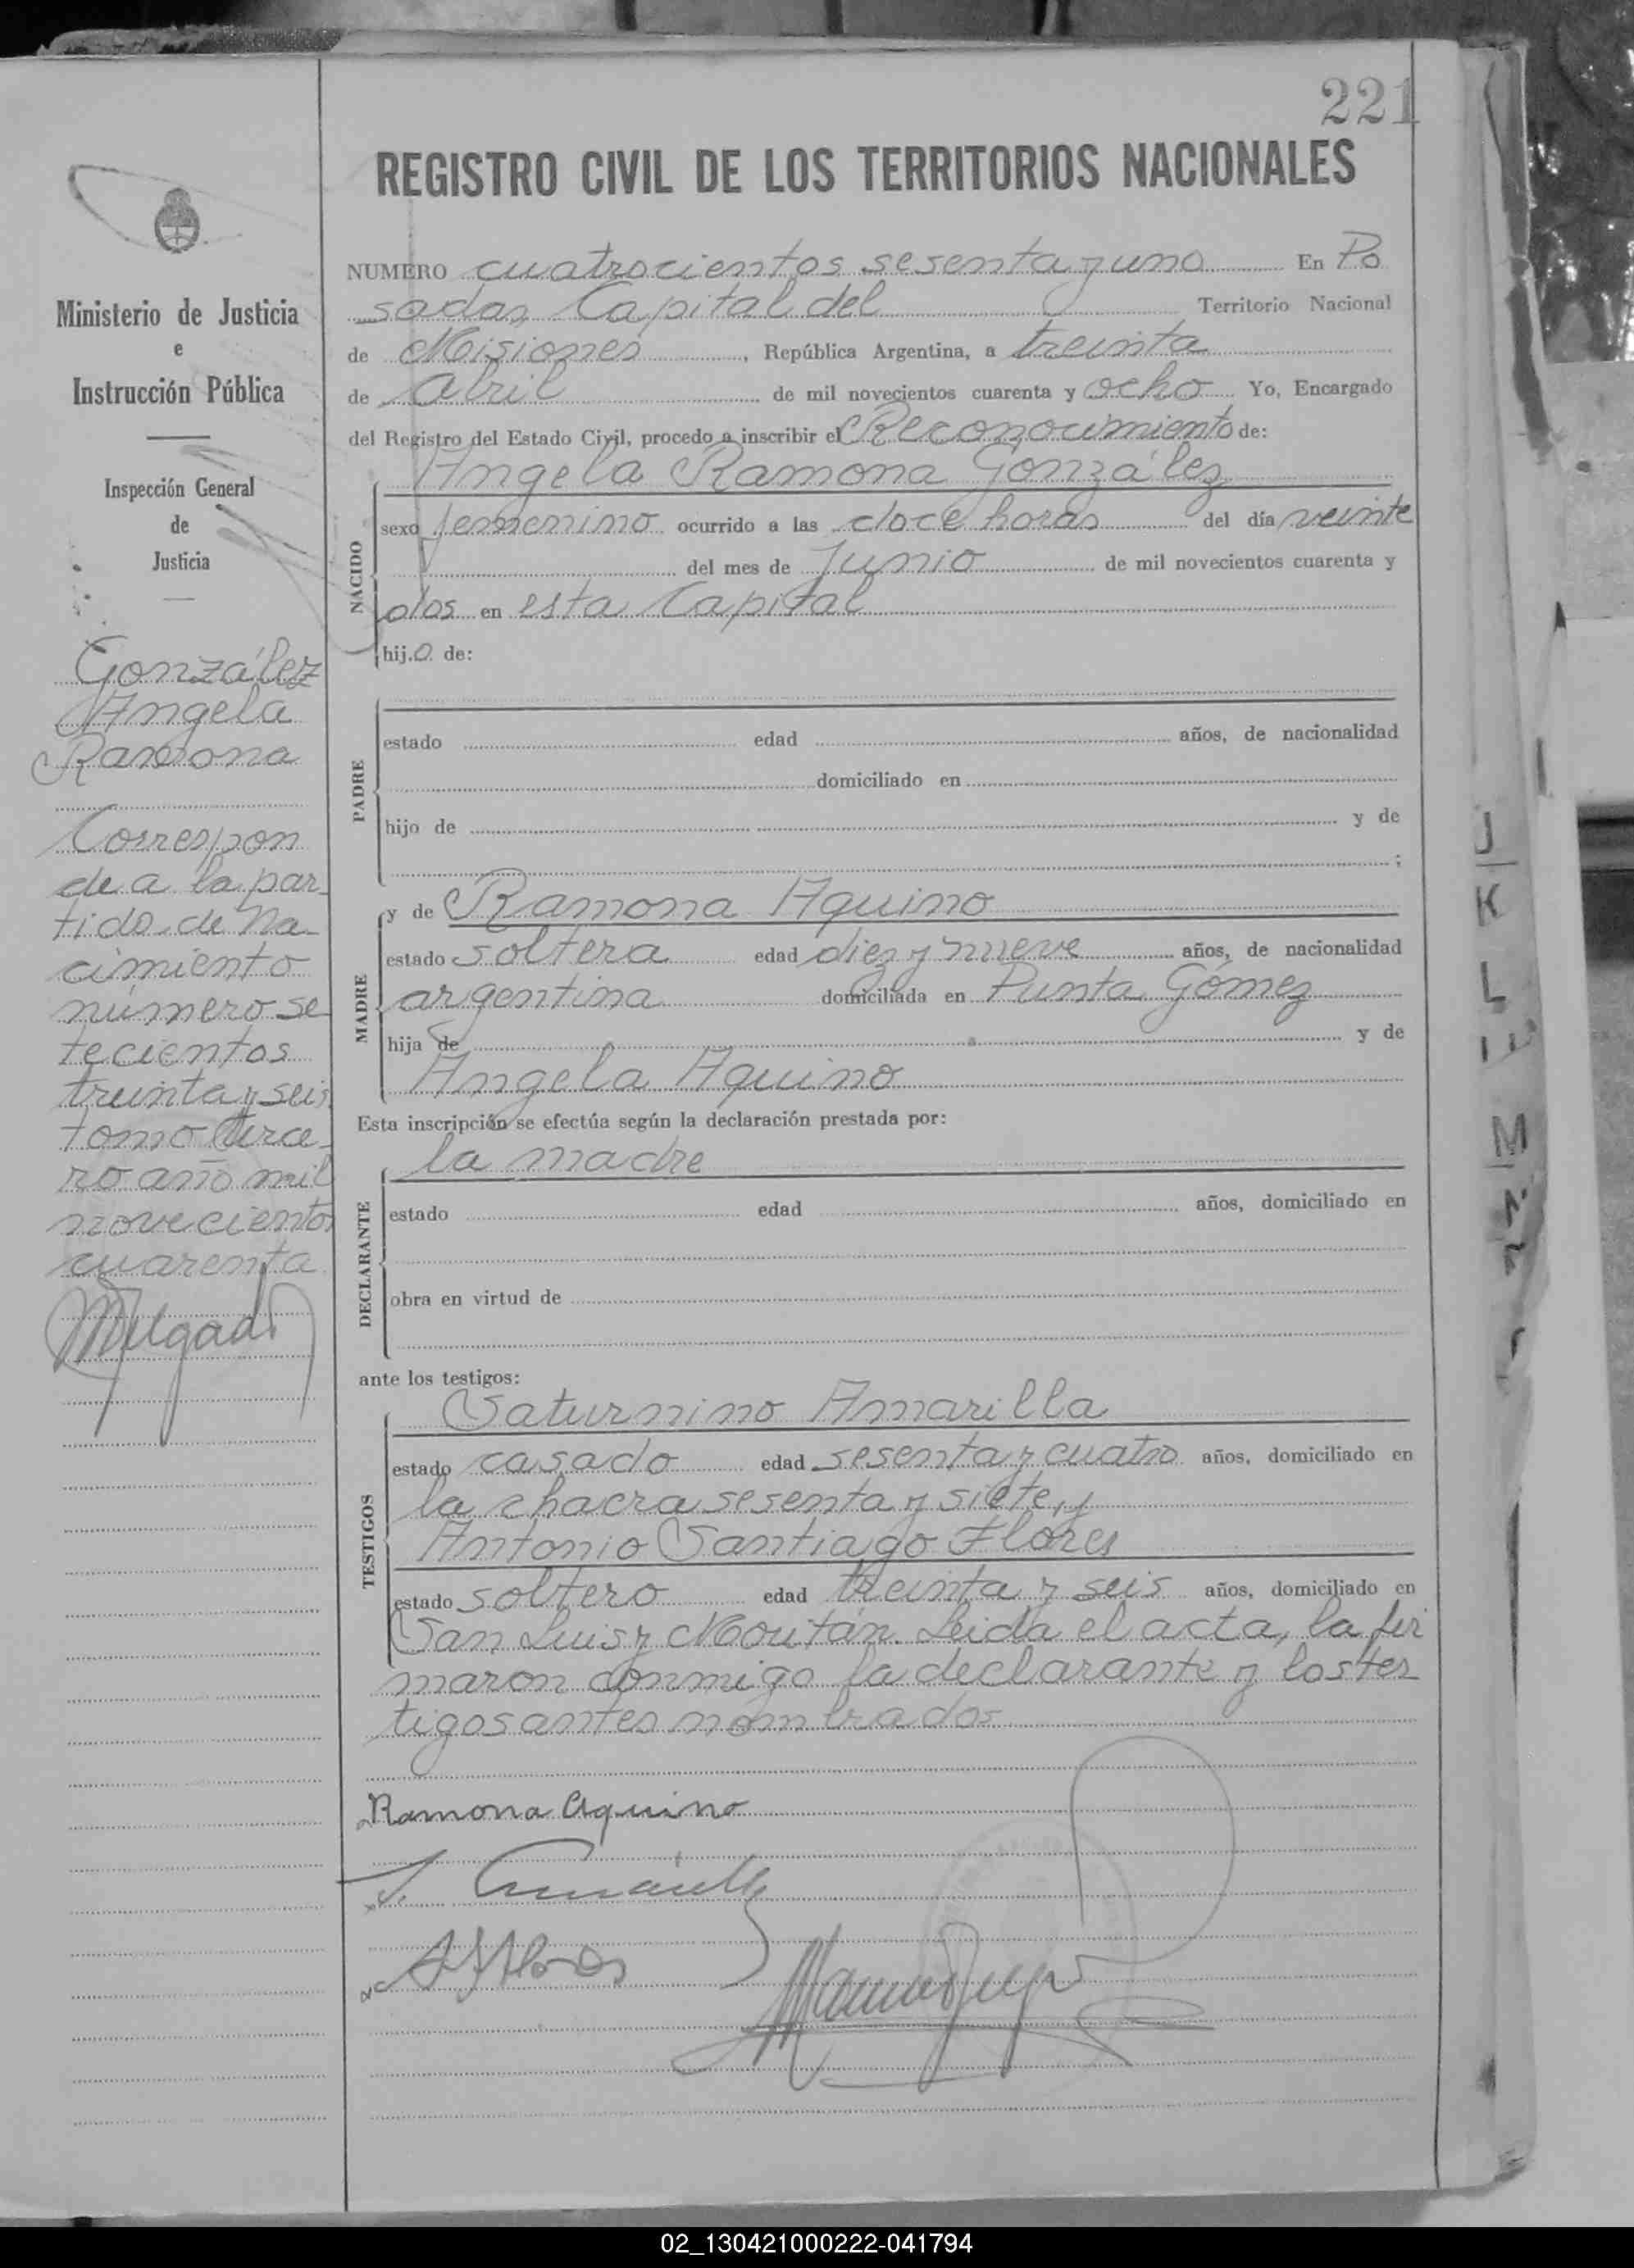 221
REGISTRO CIVIL DE LOS TERRITORIOS NACIONALES
Ministerio de Justicia
e
Instrucción Pública
Inspección General
de
Justicia
González
Angela
Ramona
Correspon
de a la par
tida de Na
cimiento
número se
tecientos
treinta y seis
tomo terce
ro año mil
novecientos
cuarenta
NUMERO cuatrocientos sesenta y uno En Po
sadas Capital del Territorio Nacional
de Misiones, República Argentina, a treinta
de abril de mil novecientos cuarenta y ocho Yo, Encargado
del Registro del Estado Civil, procedo a inscribir el Reconocimiento de:
NACIDO
Angela Ramona González
sexo femenino ocurrido a las doce horas del día veinte
del mes de Junio de mil novecientos cuarenta y
dos en esta Capital
hij.a de:
PADRE
estado edad años, de nacionalidad
domiciliado en
hijo de y de
;
MADRE
y de Ramona Aquino
estado soltera edad diez y nueve años, de nacionalidad
argentina domiciliada en Punta Gómez
hija de y de
Angela Aquino
Esta inscripción se efectúa según la declaración prestada por:
DECLARANTE
la madre
estado edad años, domiciliado en
obra en virtud de
ante los testigos:
TESTIGOS
Saturnino Amarilla
estado casado edad sesenta y cuatro años, domiciliado en
la chacra sesenta y siete, y
Antonio Santiago Flores
estado soltero edad treinta y seis años, domiciliado en
San Luis y Moritán. Leida el acta, la fir
maron conmigo la declarante y los tes
tigos antes nombrados
Ramona Aquino
J
K
L
M
02_130421000222-041794